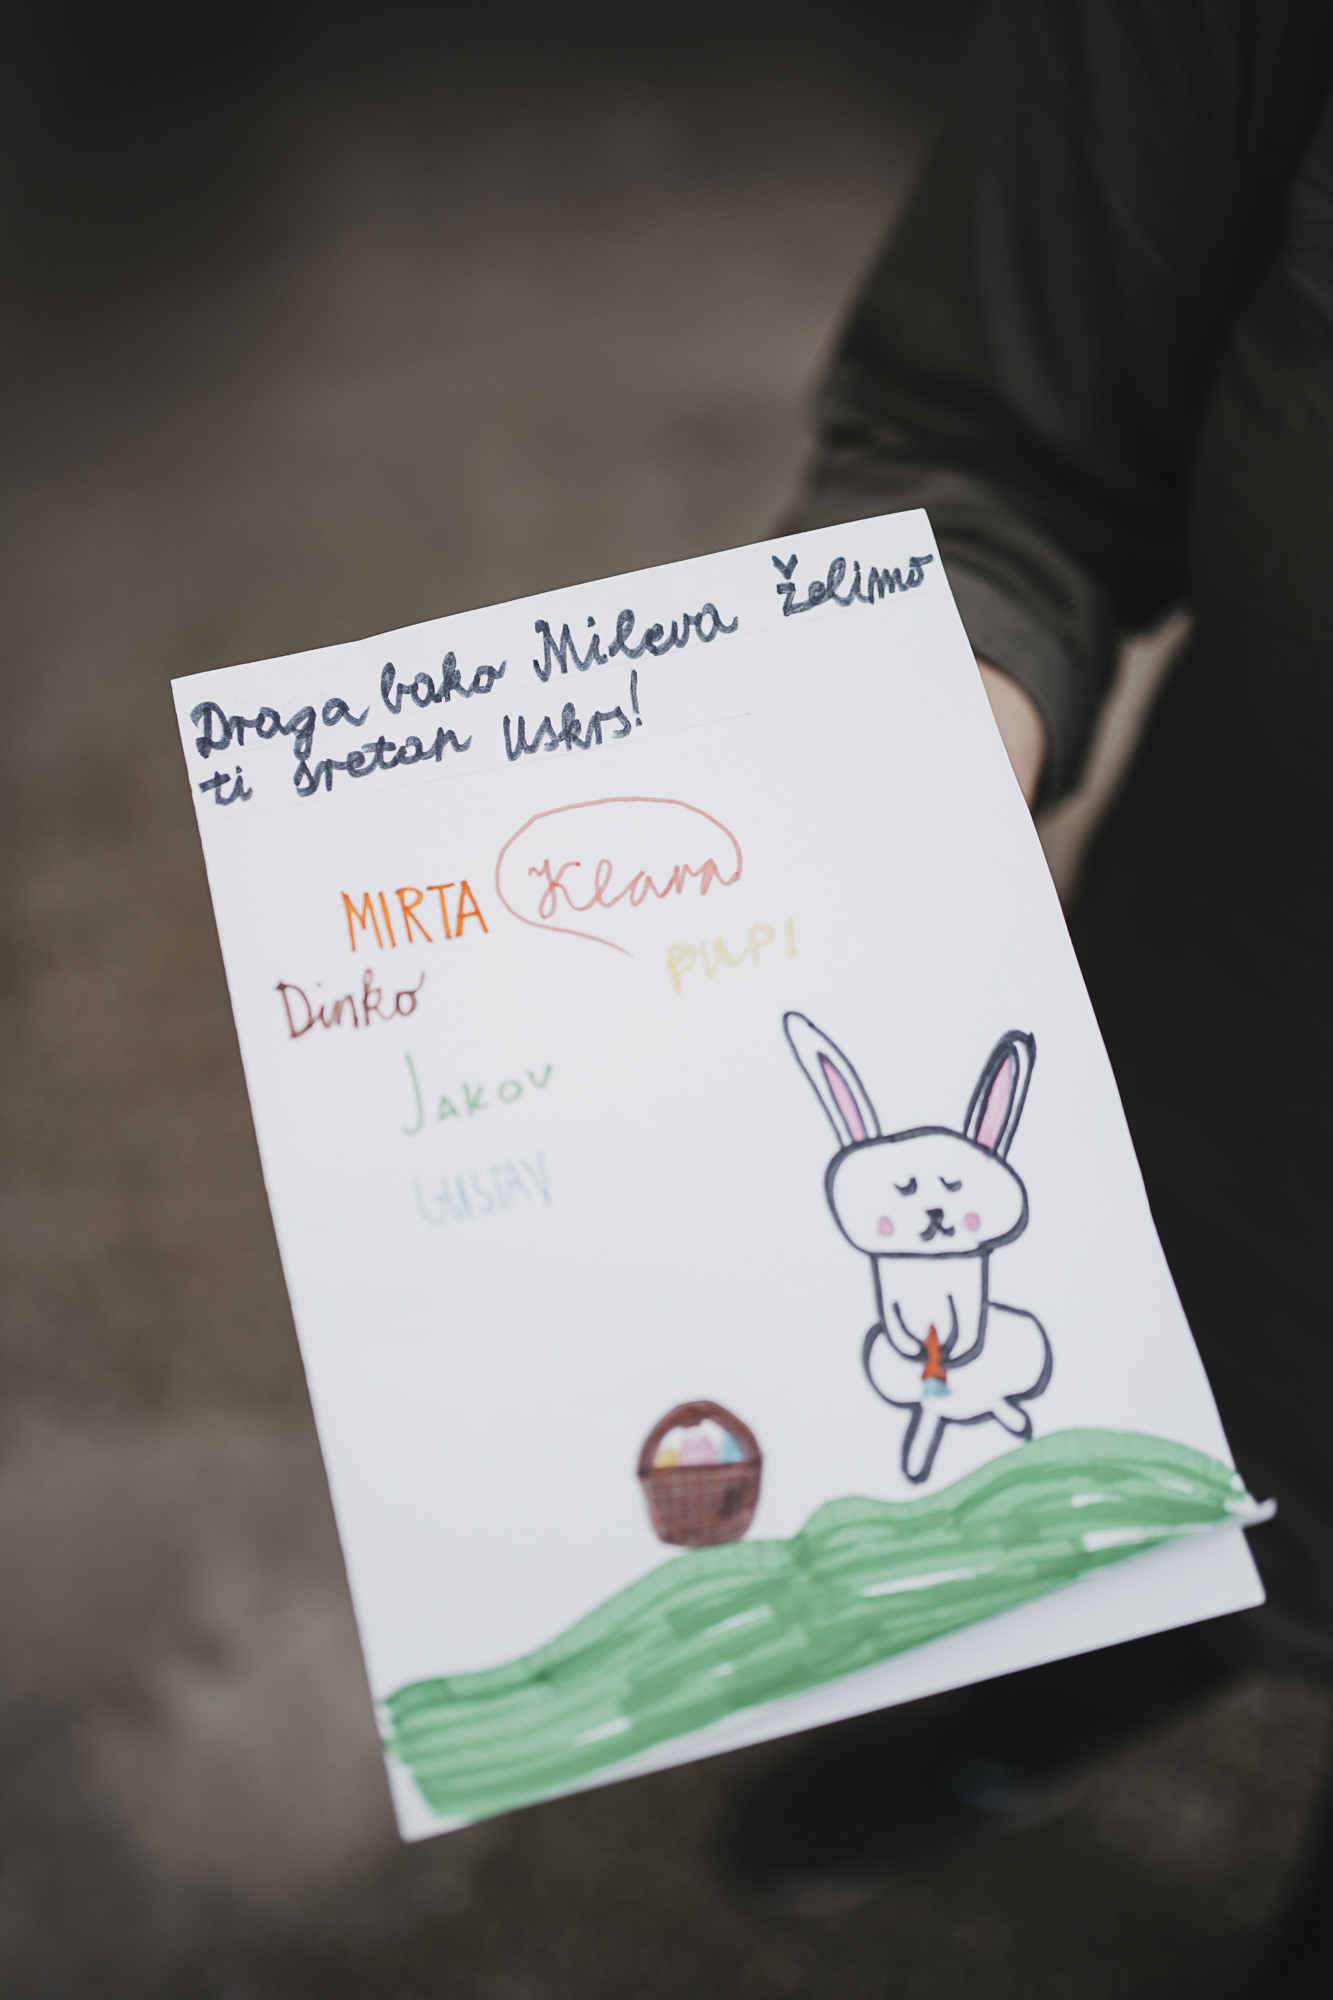 Draga bako Mileva Želimo
ti sretan Uskrs!
MIRTA Klara
PUPI
Dinko
JAKOV
GUSTAV